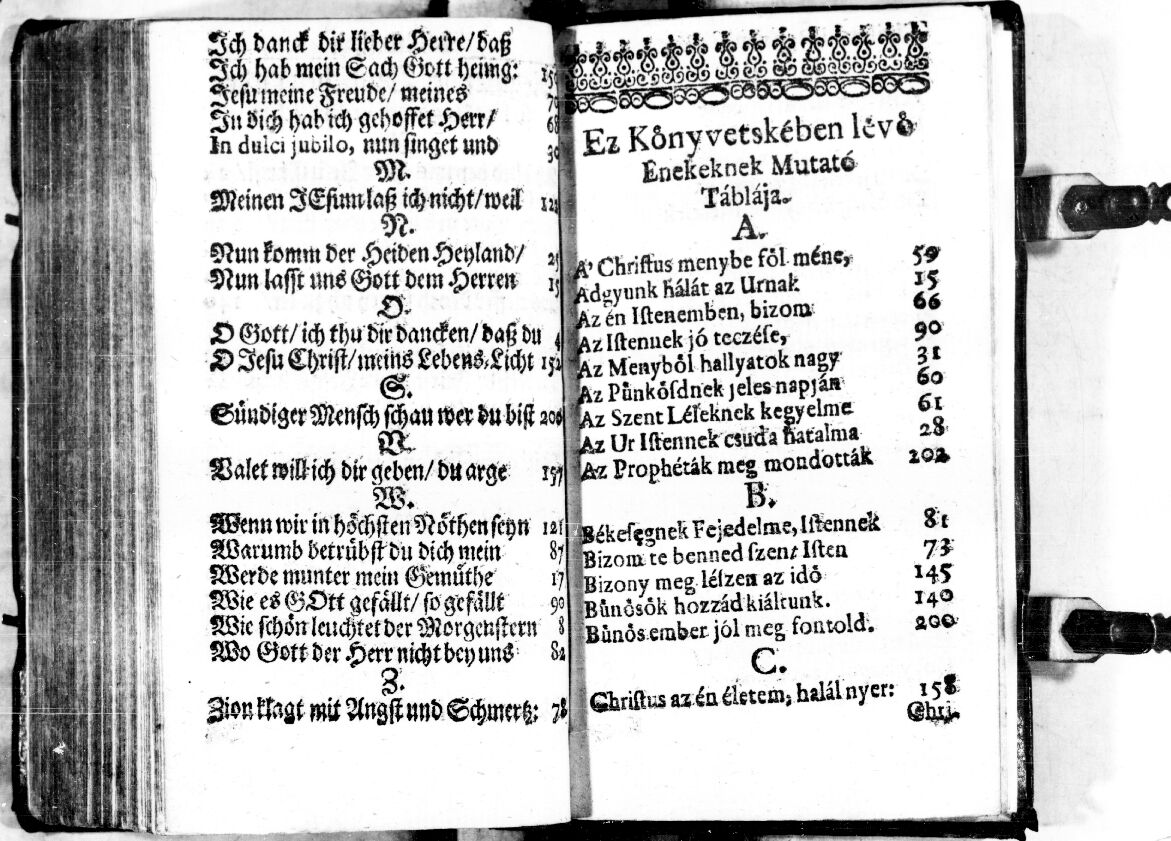 Ich danck dir lieber Herre/ daß
Ich hab mein Sach Gott heimg:
Jesu meine Freude/ meines
In dich hab ich gehoffet Herr/ 68
In dulci jubilo, nun singet und 30
M.
Meinen JEsum laß ich nicht/ weil
N.
Nun komm der Heiden Heyland/
Nun lasst uns Gott dem Herren 15
O.
O Gott/ ich thu dir dancken/ daß du 4
O Jesu Christ/ meins Lebens-Licht 152
S.
Sündiger Mensch schau wer du bist 200
V.
Valet will ich dir geben/ du arge 157
W.
Wenn wir in höchsten Nöthen seyn 121
Warumb betrübst du dich mein 87
Werde munter mein Gemüthe 17
Wie es GOtt gefällt/ so gefällt 90
Wie schön leuchtet der Morgenstern 8
Wo Gott der Herr nicht bey uns 82
Z.
Zion klagt mit Angst und Schmertz: 78
Ez Kőnyvetskében lévő
Enekeknek Mutató
Táblája.
A.
A' Chriſtus menybe fől méne, 59
Adgyunk hálát az Urnak 15
Az én Iſtenemben, bizom 66
Az Iſtennek jó teczéſe, 90
Az Menyből hallyatok nagy 31
Az Pűnkőſdnek jeles napján 60
Az Szent Léleknek kegyelme 61
Az Ur Iſtennek csuda hatalma 28
Az Prophéták meg mondották 202
B.
Békeſęgnek Fejedelme, Iſtennek 81
Bizom te benned ſzent Iſten 73
Bizony meg léſzen az idő 145
Bűnősők hozzád kiáltunk. 140
Bűnős ember jól meg fontold. 200
C.
Chriſtus az én életem, halál nyer: 158
Chri-